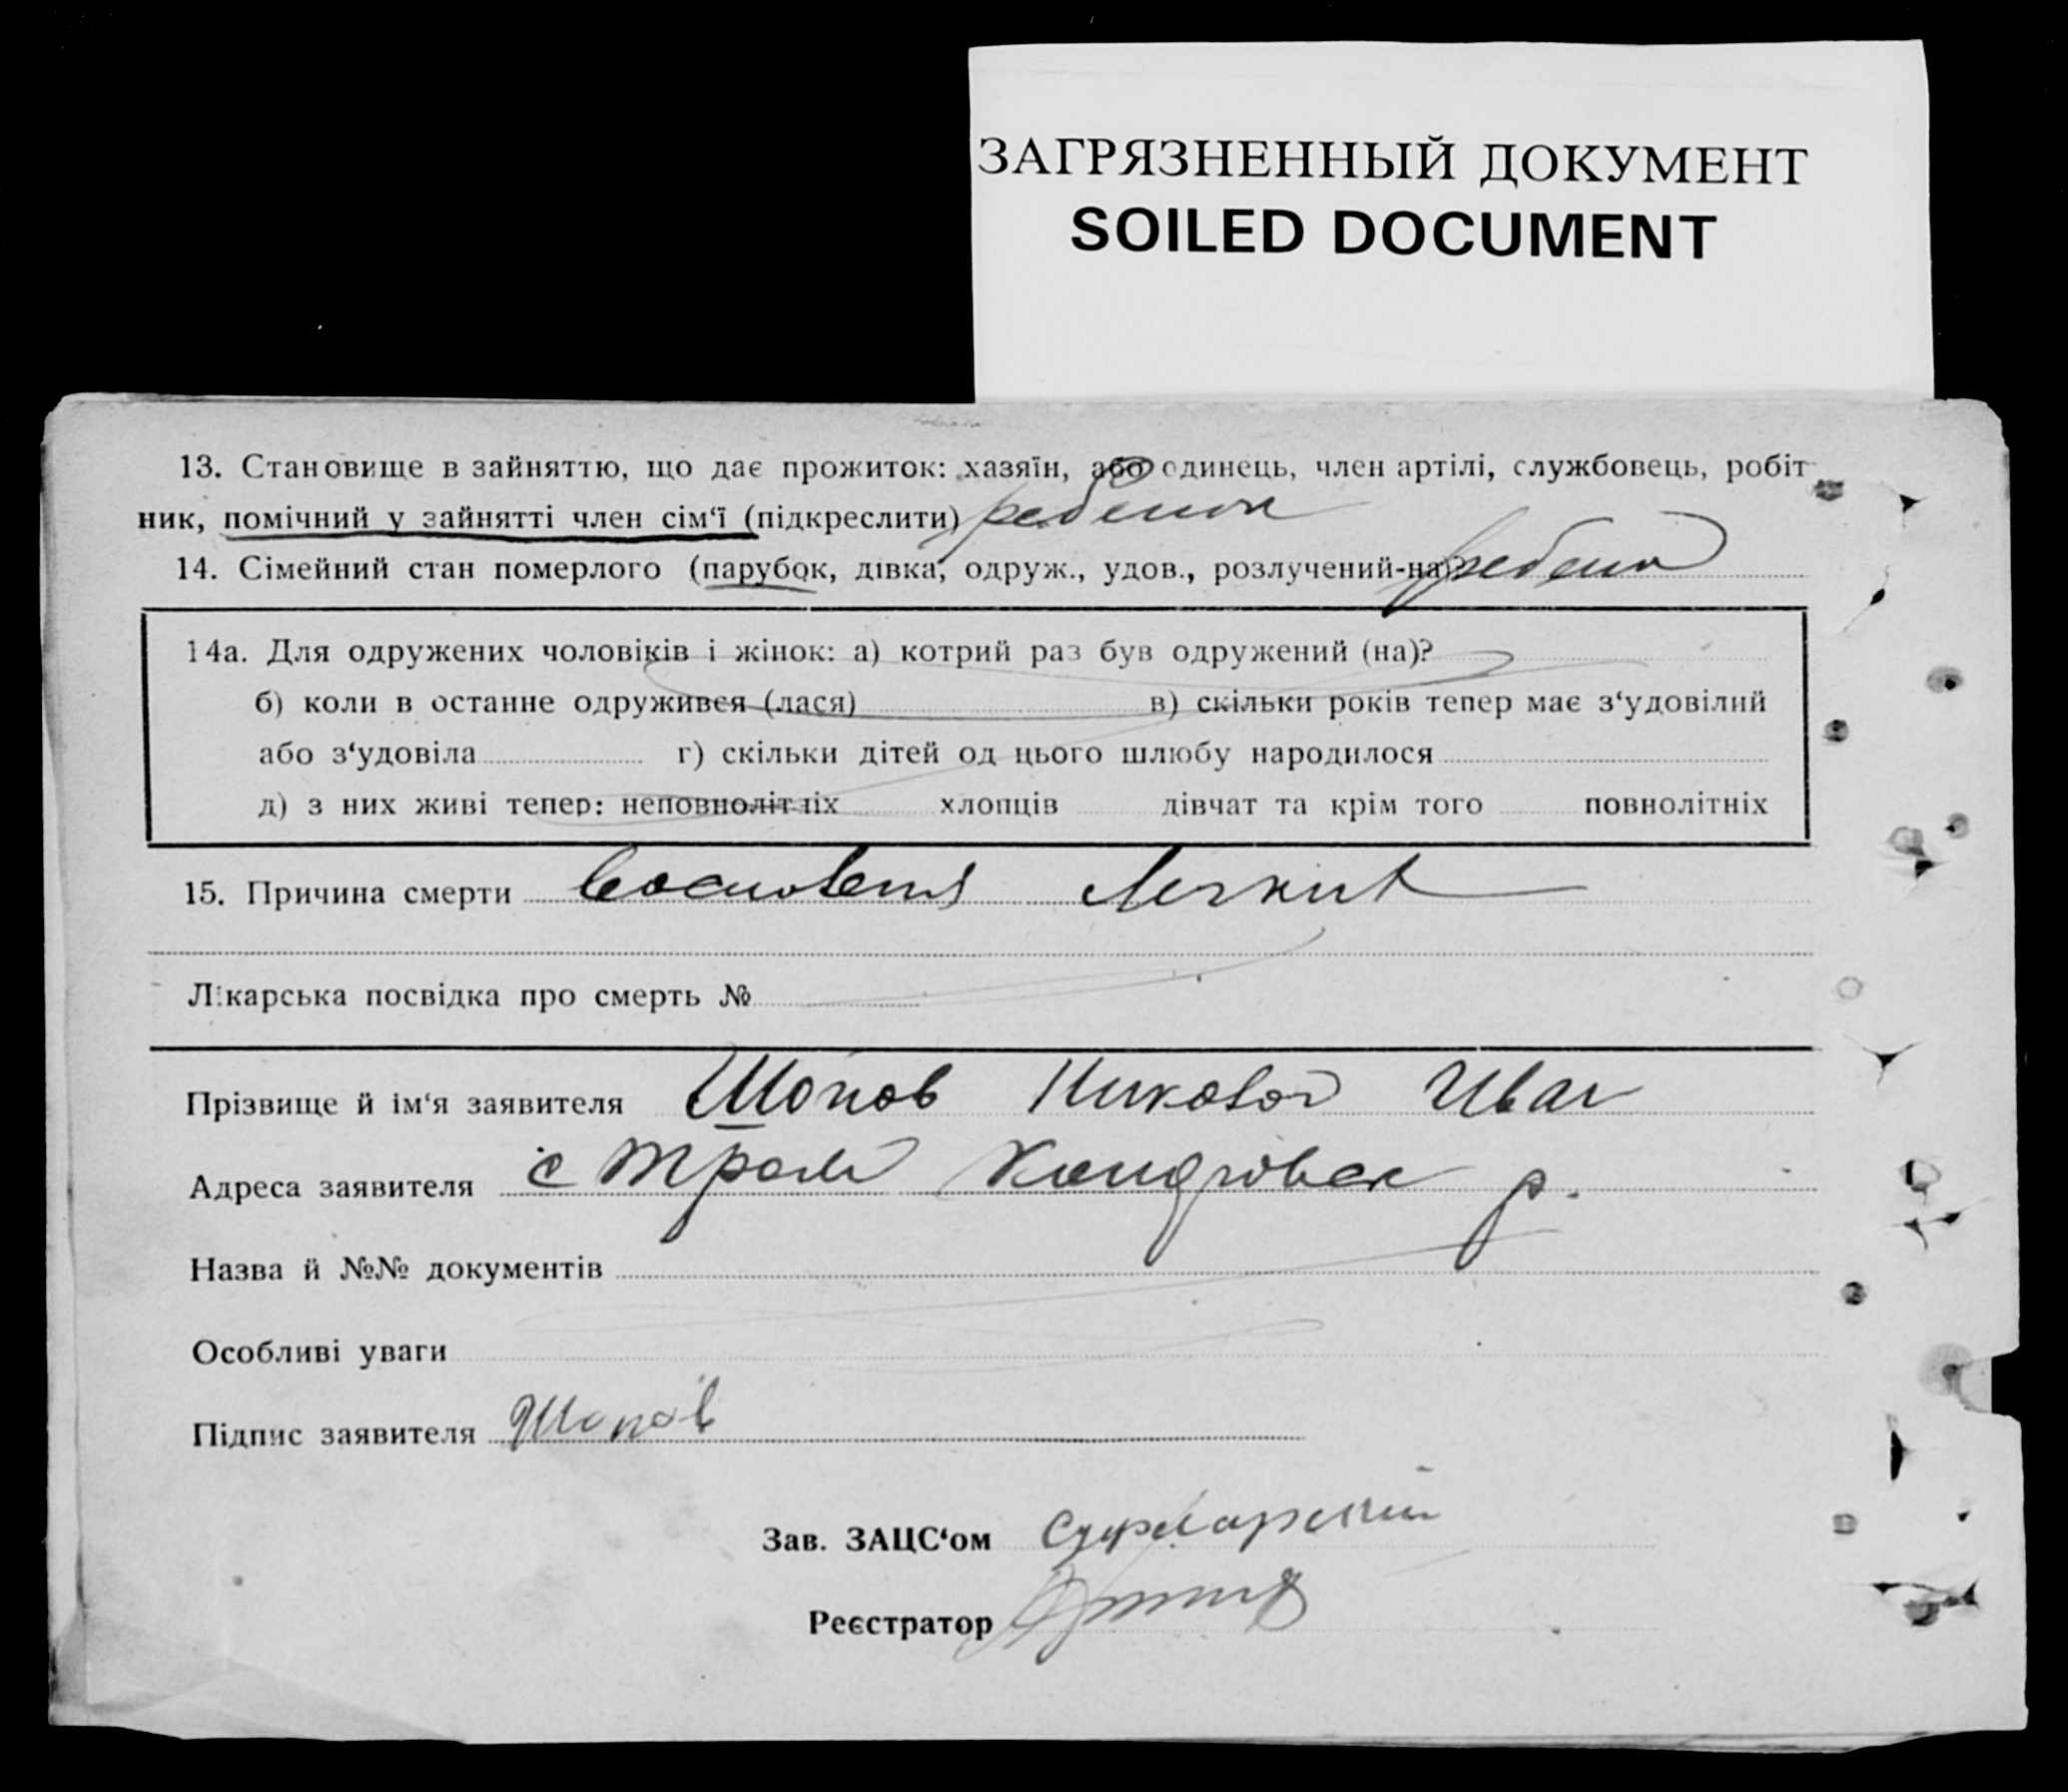 ЗАГРЯЗНЕННЫЙ ДОКУМЕНТ
SOILED DOCUMENT
13. Становище в зайняттю, що дає прожиток: хазяїн, або одинець, член артілі, службовець, робіт-
ник, помічний у зайнятті член сім‘ї (підкреслити) ребенок
14. Сімейний стан померлого (парубок, дівка, одруж., удов., розлучений-на)
14а. Для одружених чоловіків і жінок: а) котрий раз був одружений (на)?
б) коли в останнє одружився (лася) в) скільки років тепер має з‘удовілий
або з‘удовіла г) скільки дітей од цього шлюбу народилося
д) з них живі тепер: неповнолітніх хлопців дівчат та крім того повнолітніх
15. Причина смерти
Лікарська посвідка про смерть №
Прізвище й ім‘я заявителя Шопов Николай Иван
Адреса заявителя с
р.
Назва й №№ документів
Особливі уваги
Підпис заявителя Шопов
Зав. ЗАЦС‘ом
Реєстратор